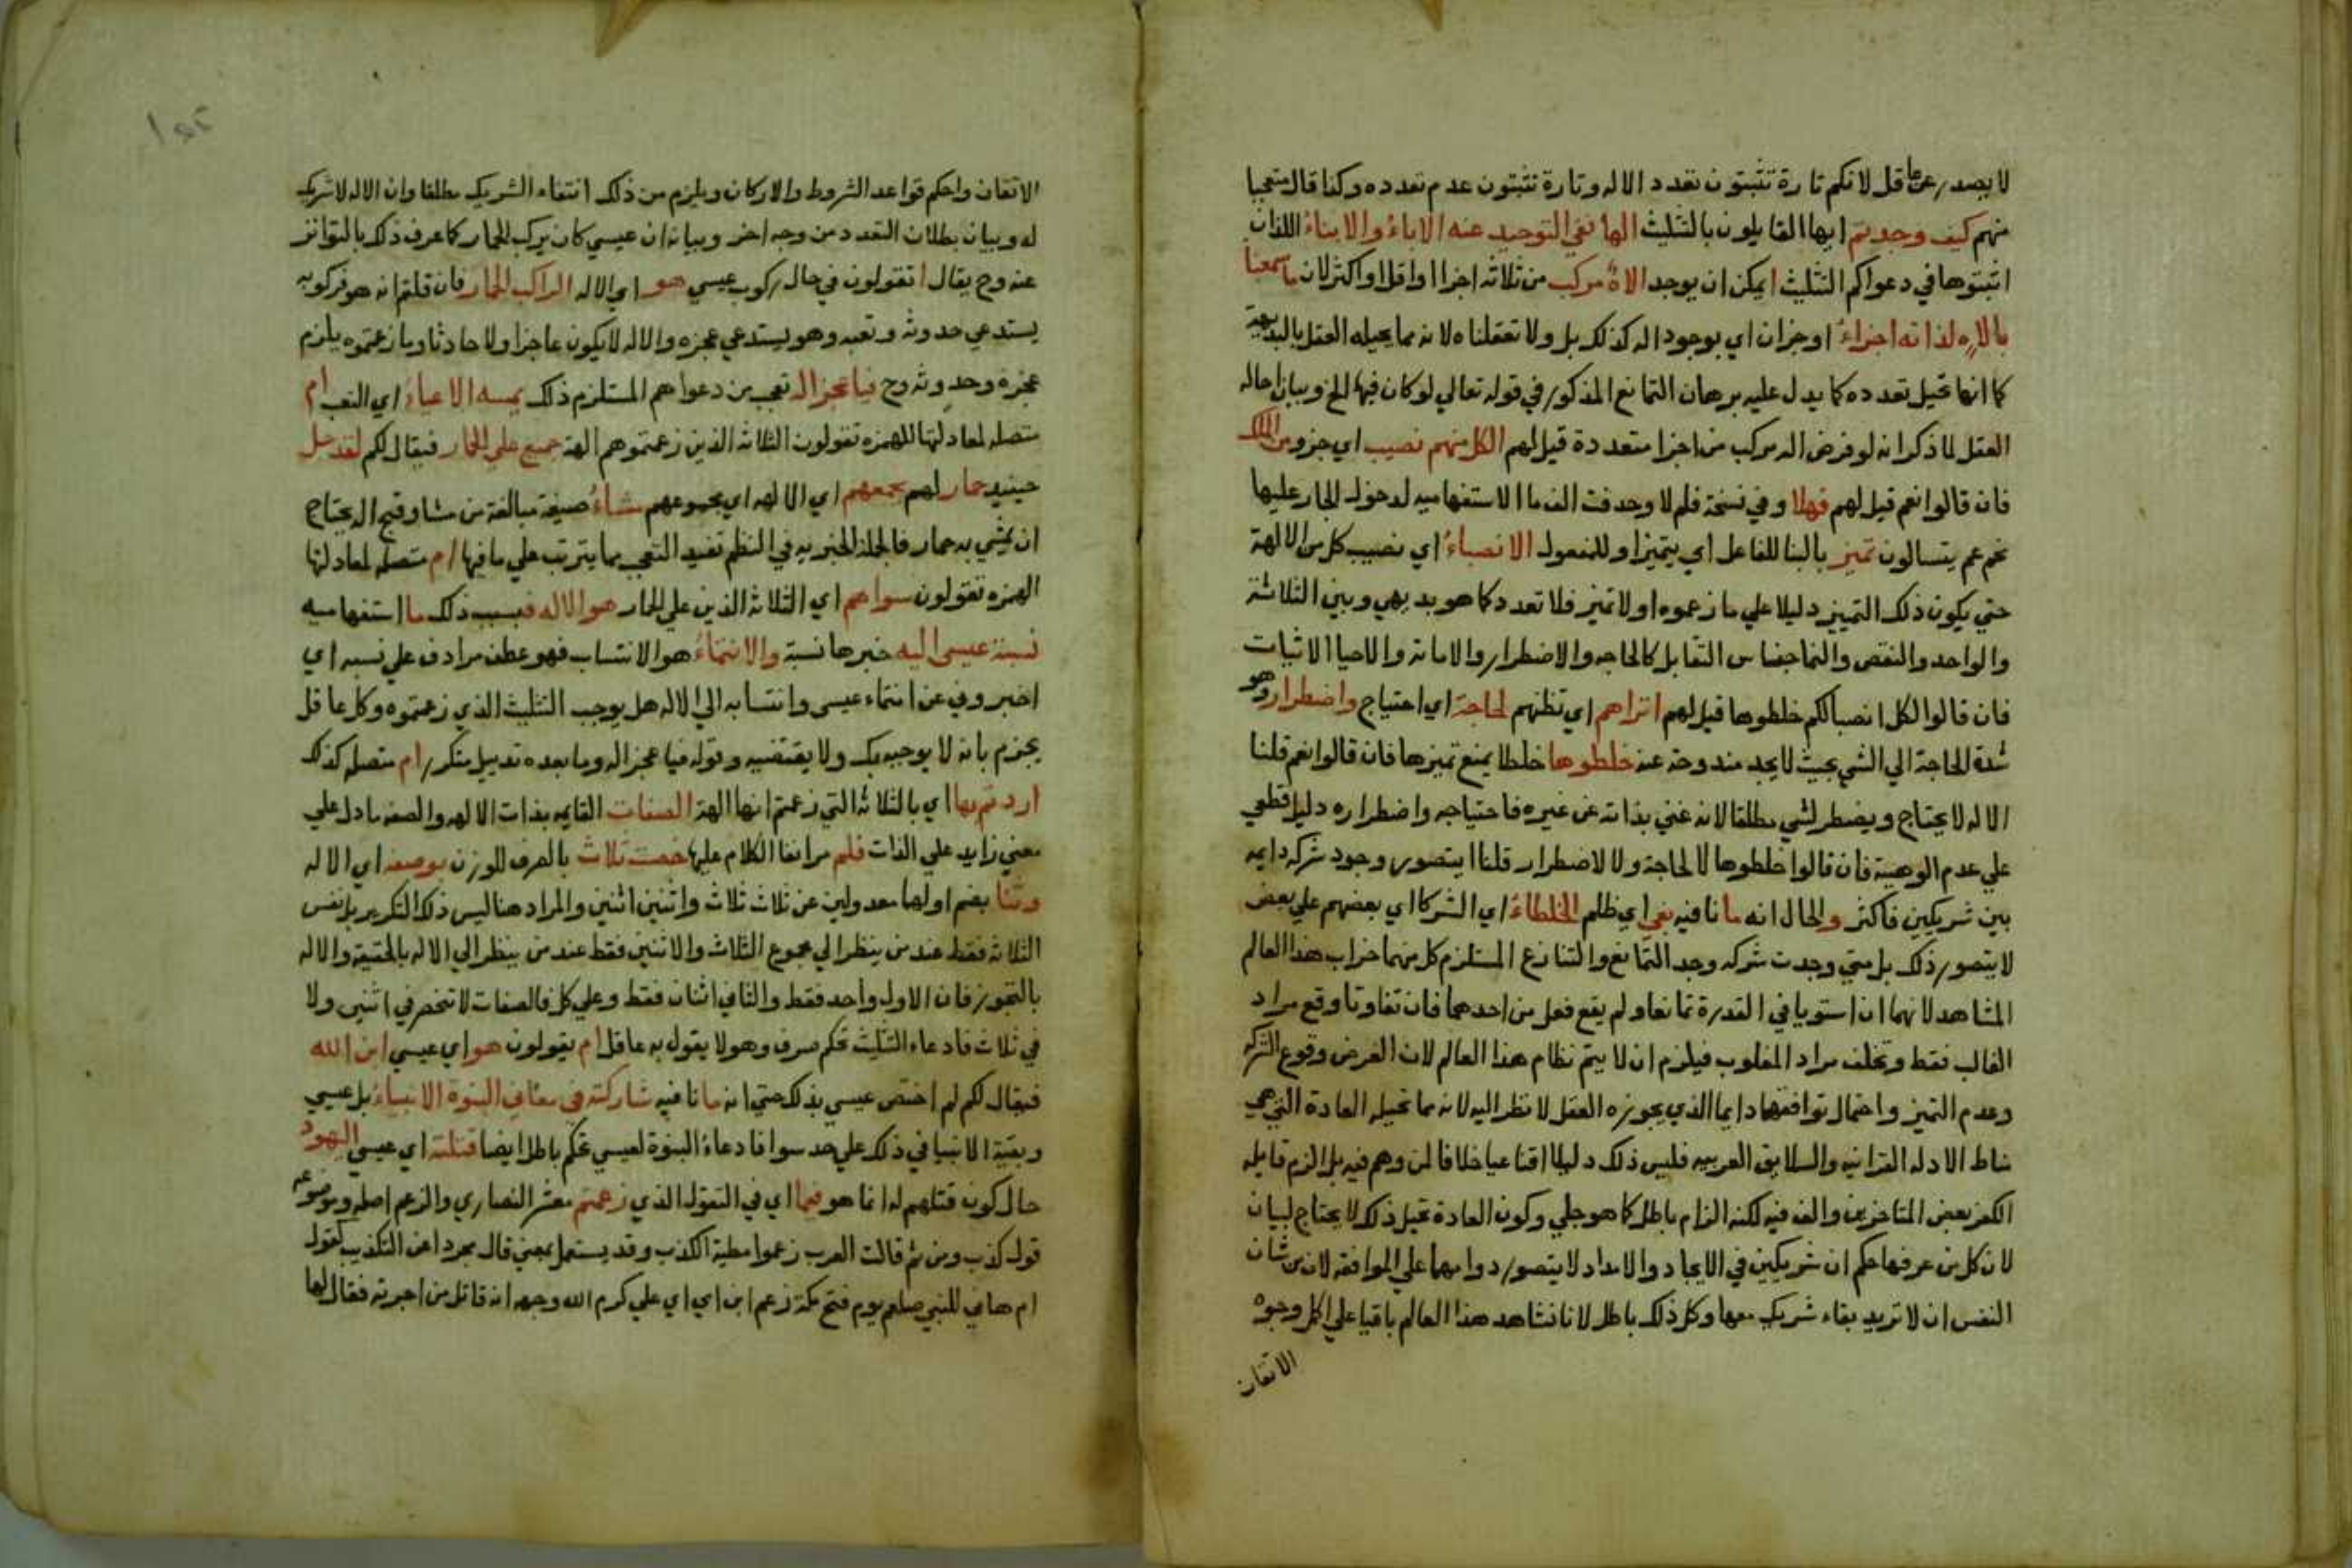 لا يصدر عن عاقل لانكم تارة تثبتون تعدد الاله وتارة تثبتون عدم تعدده وكذا قال متعجبا
منهم كيف وجدتم ايها القايلون بالتثليث الها نفي التوحيد عنه الاباء والابناء اللذان
اثبتوها في دعواكم التثليث ايمكن ان يوجد الاه مركب من ثلاثة اجزا او اقل او اكثر لان ما سمعنا
بالاه لذاته اجزاء او جزان اي بوجود اله كذلك بل ولا تعقلناه لانه مما يحيله العقل بالبديهة
كما انها تحيل تعدده كما يدل عليه برهان التمانع المذكور في قوله تعالي لو كان فيهما الخ وبيان احاله
العقل لما ذكر انه لو فرض اله مركب من اجزا متعددة قيل لهم الكل منهم نصيب اي جزو من الملك
فان قالوا نعم قيل لهم فهلا وفي نسخة فلم لا وحدفت الف ما الاستفهاميه لدخول الجار عليها
نحو عم يتسالون تميز بالبنا للفاعل اي يتميز او للمفعول الانصباء اي نصيب كل من الالهة
حتي يكون ذلك التمييز دليلا علي ما زعموه اولا تميز فلا تعدد كما هو بديهي وبين الثلاثة
والواحد والنقص والنما جناس التقابل كالحاجه والاضطرار والاماتة والاحيا الاثبات
فان قالوا لكل انصبا لكم خلطوها قيل لهم اتراهم اي تظنهم لحاجة اي احتياج واضطرار وهو
شدة الحاجة الي الشي بحيث لا يجد مندوحة عنه خلطوها خلطا يمنع تميزها فان قالوا نعم قلنا
الاله لا يحتاج ويضطر لشي مطلقا لانه غني بذاته عن غيره فاحتياجه واضطراره دليل قطعي
علي عدم الوهية فان قالوا خلطوها لا لحاجة ولا لاضطرار قلنا ايتصور وجود شركه دايمه
بين شريكين فاكثر والحال انه ما نافيه بغي اي ظلم الخلطاء اي الشركا اي بعضهم علي بعض
لا يتصور ذلك بل متي وجدت شركه وجد التمانع والتنازع المستلزم كل منهما خراب هذا العالم
المشاهد لانهما ان استويا في القدرة تمانعا ولم يقع فعل من احدهما فان تفاوتا وقع مراد
الغالب فقط وتخلف مراد المغلوب فيلزم ان لا يتم نظام هذا العالم لان الفرض وقوع الشركه
وعدم التميز واحتمال توافقهما دايما الذي يجوزه العقل لا نظر اليه لانه مما تحيله العادة التي هي
مناط الادله القرانيه والسلايق العربيه فليس ذلك دليلا اقناعيا خلافا لمن وهم فيه بل الزم قايله
الكفر بعض المتاخرين والف فيه لكنه الزام باطل كما هو جلي وكون العادة تحيل ذلك لا يحتاج لبيان
لان كل من عرفها حكم ان شريكين في الايجاد والامداد لا يتصور دوامهما علي الموافقه لان من شان
النفس ان لا تريد بقاء شريك معها وكل ذلك باطل لانا نشاهد هذا العالم باقيا علي اكمل وجوه
الاتقان
الاتقان واحكم قواعد الشروط والاركان ويلزم من ذلك انتفاء الشريك مطلقا وان الاله لا شريك
له وبيان بطلان التعدد من وجه اخر وبيانه ان عيسي كان يركب الحمار كما عرف ذلك بالتواتر
عنه وح يقال اتقولون في حال ركوب عيسي هو اي الاله الراكب الحمار فان قلتم انه هو فركوبه
يستدعي حدوثه وتعبه وهو يستدعي عجزه والاله لا يكون عاجزا ولا حادثا وما زعمتموه يلزم
عجزه وحدوثه وح فيا عجز اله تعجب من دعواهم المستلزم ذلك يمسه الاعياء اي التعب ام
متصله لمعادلتها للهمزه تقولون الثلاثة الذين زعمتموهم الهة جميع علي الحمار فيقال لكم لقد جل
حينيد حمار لهم بجمعهم اي الالهه اي بمجموعهم مشاء صيغة مبالغة من مشا وقبح اله يحتاج
ان يمشي به حمار فالجملة الخبريه في النظم تفيد التعجب بما يترتب علي ما فيها ام متصله لمعادلتها
الهمزه تقولون سواهم اي الثلاثة الذين علي الحمار هو الاله فبسبب ذلك ما استفهاميه
نسبة عيسي اليه خبرها نسبة والانتماء هو الانتساب فهو عطف مرادف علي نسبه اي
اخبروني عن انتماء عيسى وانتسابه الي الاله هل يوجب التثليث الذي زعمتموه وكل عاقل
يجزم بانه لا يوجبه بك ولا يقتضيه وقوله فيا عجز اله وما بعده تدييل متكرر ام متصله كذلك
اردتم بها اي بالثلاثة التي زعمتم انها الهة الصفات القايمه بذات الالهه والصفه ما دل علي
معني زايد علي الذات فلم مر انفا الكلام عليها خصت ثلاث بالصرف للوزن بوصفه اي الاله
وثنا بضم اولهما معدولين عن ثلاث ثلاث واثنين اثنين والمراد هنا ليس ذلك التكرير بل نفس
الثلاثة فقط عند من ينظر الي مجموع الثلاث والاثنين فقط عند من ينظر الي الاله بالحقيقة والاله
بالتجوز فان الاول واحد فقط والثاني اثنان فقط وعلي كل فالصفات لا تنحصر في اثنين ولا
في ثلاث فادعاء التثليث تحكم صرف وهو لا يقول به عاقل ام تقولون هو اي عيسي ابن الله
فيقال لكم لم اختص عيسي بذلك حتي انه ما نافيه شاركته في معاني البنوة الانبياء بل عيسي
وبقية الانبيا في ذلك علي حد سوا فادعاء البنوة لعيسي تحكم باطل ايضا قتلته اي عيسي اليهود
حال كون قتلهم له انما هو فيما اي في التقول الذي زعمتم معشر النصاري والزعم اصله وموضوعه
قول كذب ومن ثم قالت العرب زعموا مطية الكذب وقد يستعمل بمعني قال مجردا عن التكذيب كقول
ام هاني للنبي صلعم يوم فتح مكة زعم ابن امي اي علي كرم الله وجهه انه قاتل من اجرته فقال لها